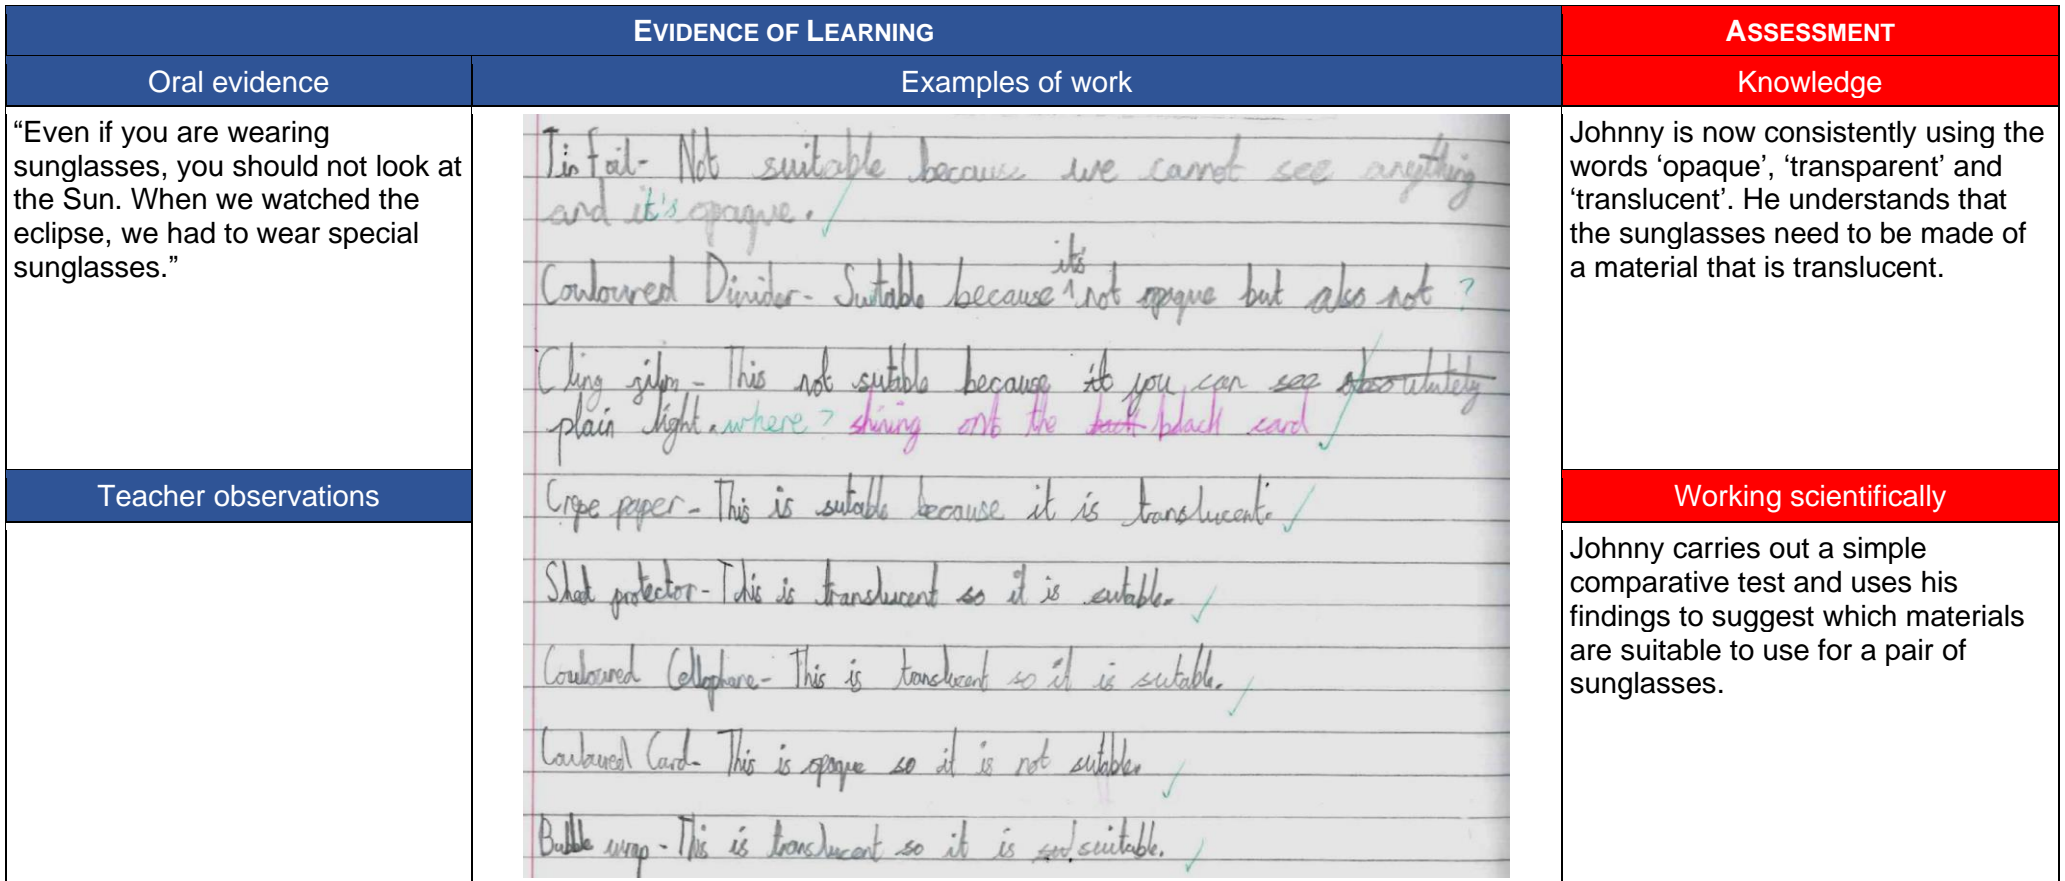 EVIDENCE OF LEARNING
ASSESSMENT
Oral evidence
Examples of work
Knowledge
“Even if you are wearing
sunglasses, you should not look at
the Sun. When we watched the
eclipse, we had to wear special
sunglasses.”
Teacher observations
Tin foil- Not suitable because we cannot see anything
and it's opaque.
Couloured Divider- Suitable because it's not opaque but also not ?
Cling - This not sutible because it you can see absolutely
plain light. where? shining ont the black card
Crepe paper - This is sutable because it is translucent.
Sheet protector - This is translucent so it is sutable.
Couloured Cellophane - This is translucent so it is sutable.
Couloured Card- This is opaque so it is not sutable.
Bubble wrap - This is translucent so it is suitable.
Johnny is now consistently using the
words ‘opaque’, ‘transparent’ and
‘translucent’. He understands that
the sunglasses need to be made of
a material that is translucent.
Working scientifically
Johnny carries out a simple
comparative test and uses his
findings to suggest which materials
are suitable to use for a pair of
sunglasses.